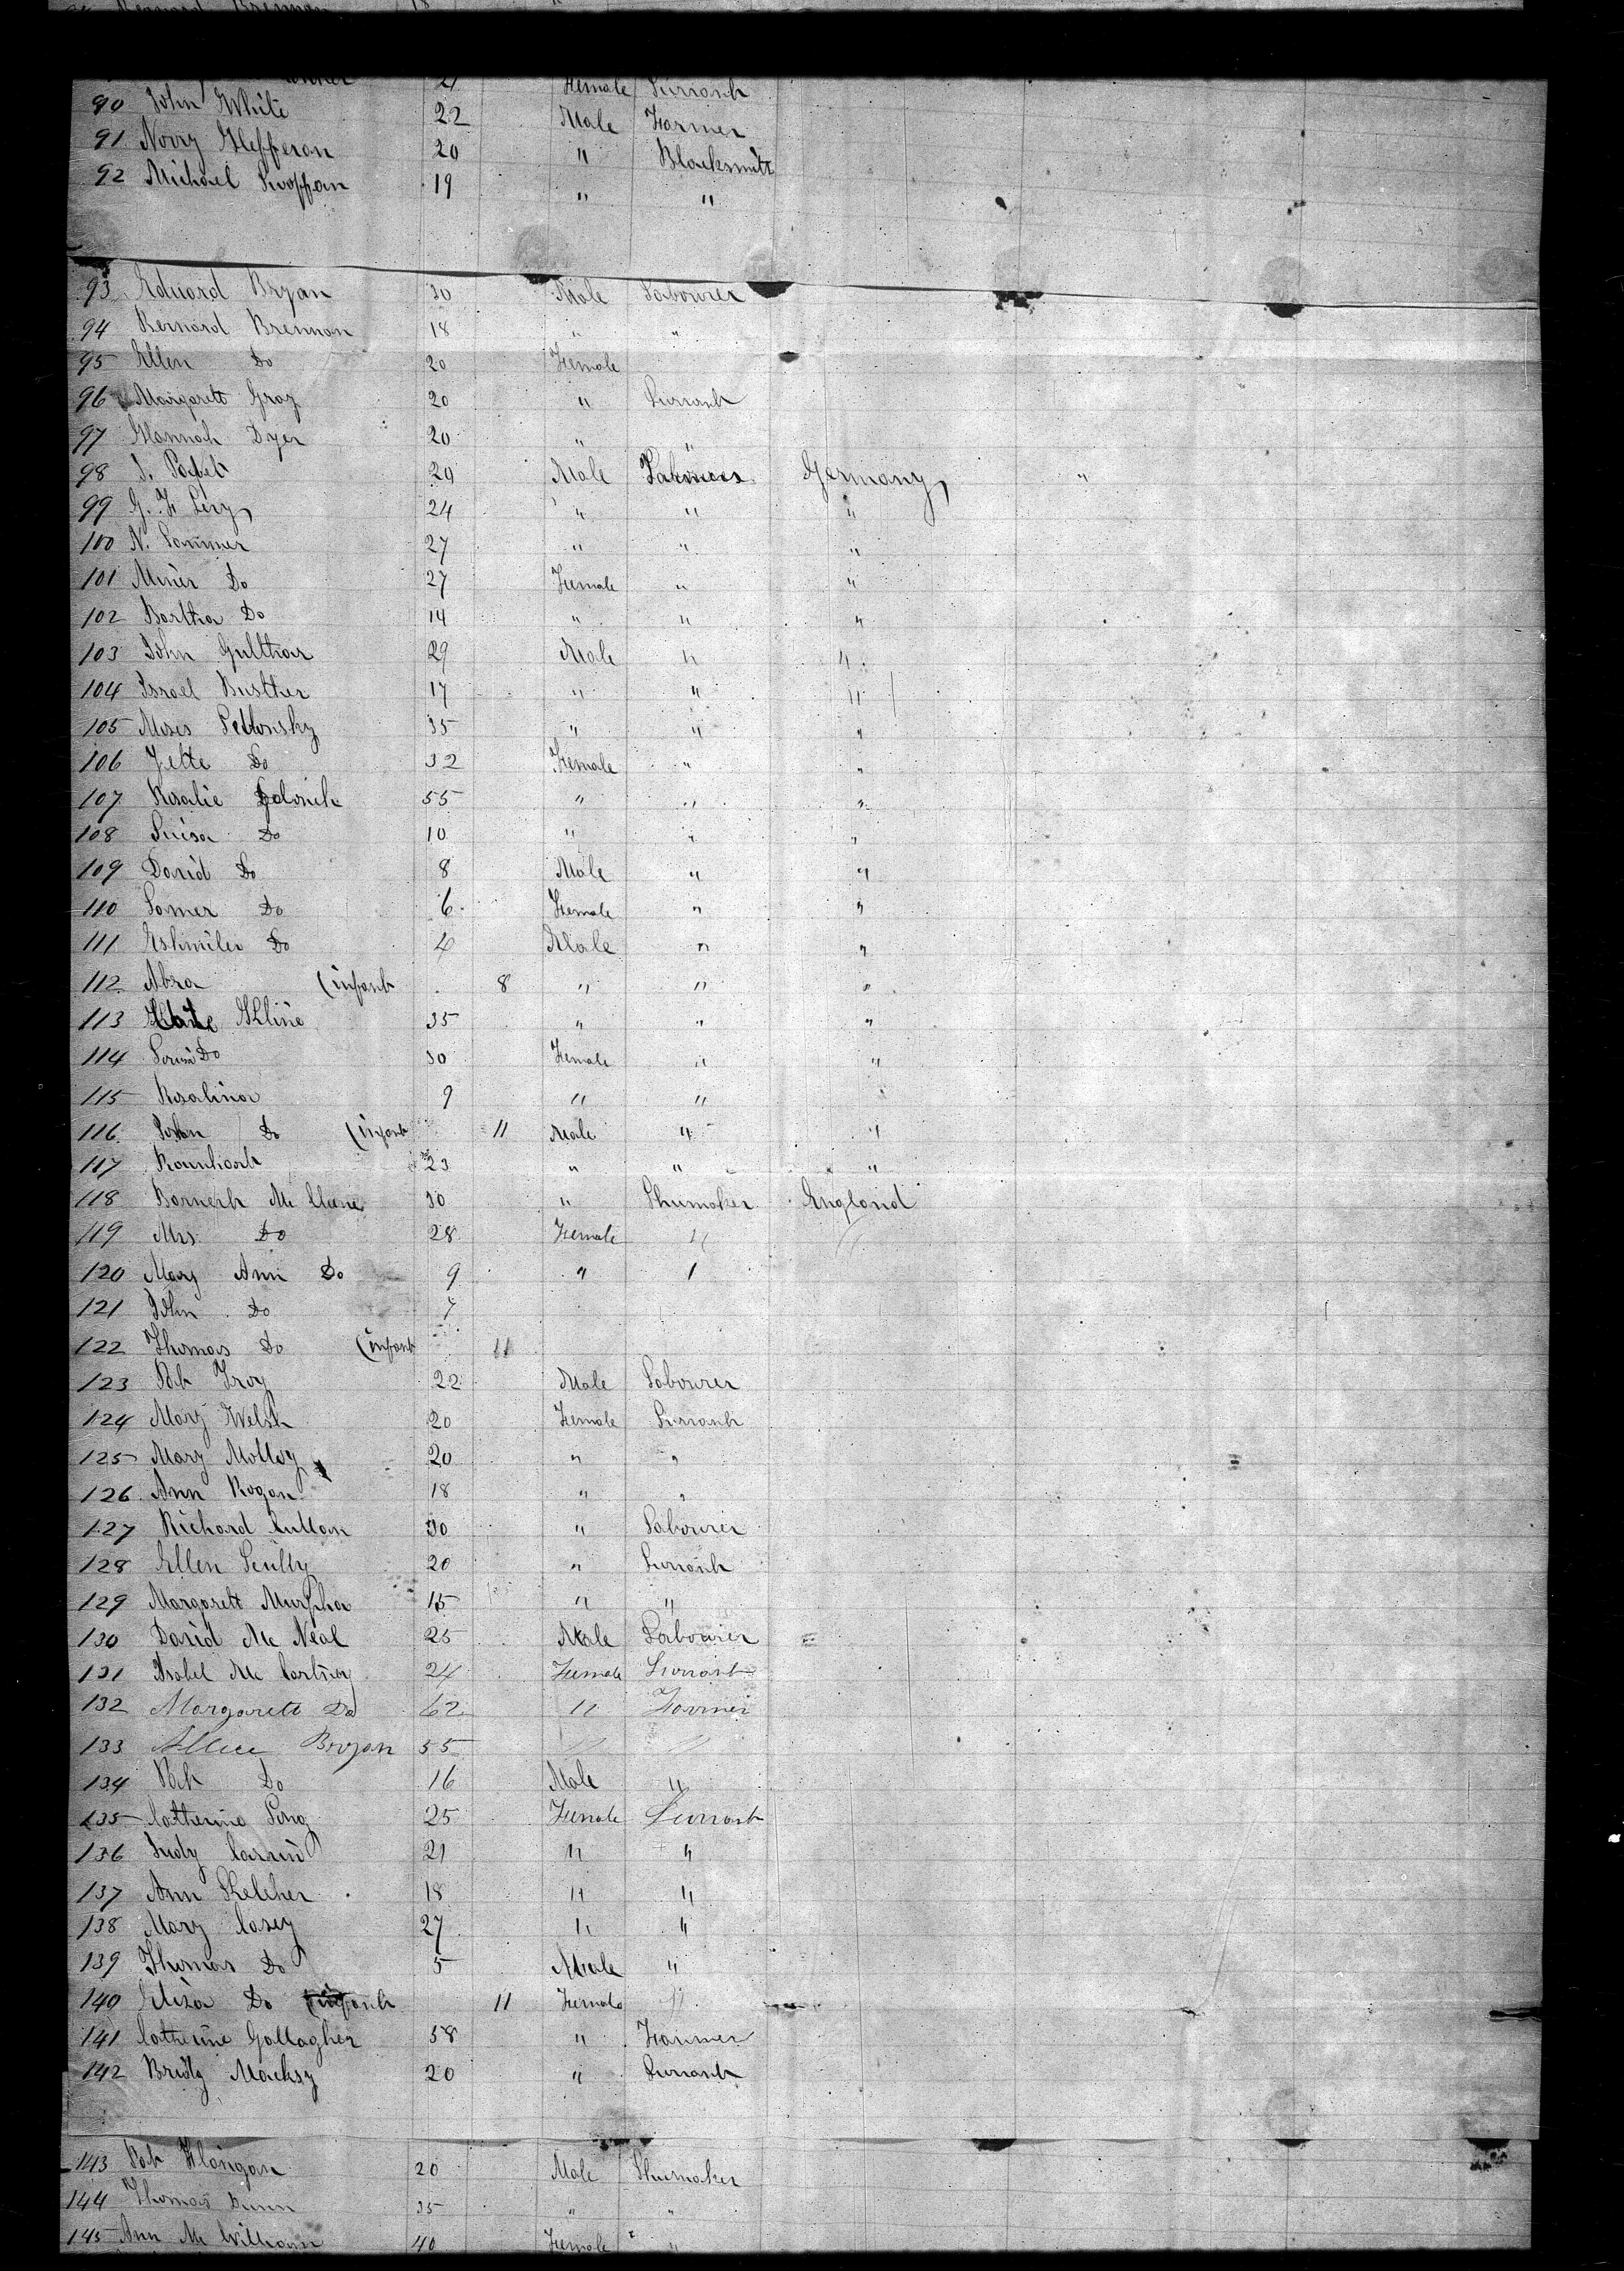 21 Female Servant
90 John White 22 Male Farmer
91 Hefferon 20 " Blacksmith
92 Michael 19 " "
93 Edward Bryan 30 Male Labourer
94 Bernard Brennan 18 " "
95 Ellen Do 20 Female
96 Margarett Gray 20 " Servant
97 Hannah Dyer 20 " "
98 29 Male Labourer Germany "
99 G. F Levy 24 " " "
100 N. Sommer 27 " " "
101 Miner Do 27 Female " "
102 Bartha Do 14 " " "
103 John Gulthar 29 Male " "
104 Israel Busther 17 " " "
105 Moses 35 " " "
106 Jette Do 32 Female " "
107 Rosalie 55 " " "
108 Luisa Do 10 " " "
109 David Do 8 Male " "
110 Samer Do 6 Female " "
111 Do 4 Male " "
112 Abra (infant 8 " " "
113 Kline 35 " " "
114 Do 30 Female " "
115 Rosalina 9 " "
116 John Do (infant 11 Male " "
117 23 " " "
118 Mc 30 " Shumaker England
119 Mrs Do 28 Female " "
120 Mary Ann Do 9 "
121 John Do 7
122 Thomas Do (infant 11
123 Pat Troy 22 Male Labourer
124 Mary Welsh 20 Female Servant
125 Mary Molloy 20 " "
126 Ann Rogan 18 " "
127 Richard Cullan 30 " Labourer
128 Ellen Scully 20 " Servant
129 Margarett Murpha 15 " "
130 David Mc Neal 25 Male Labourer
131 Isabel Mc Cartney 24 Female Servant
132 Margarett Do 62 " Farmer
133 Bryan 55 " "
134 Pat Do 16 Male "
135 Catherine Long 25 Female Servant
136 Judy 21 " "
137 Ann Keleher 18 " "
138 Mary Casey 27 " "
139 Thomas Do 5 Male "
140 Eliza Do (infant 11 Female "
141 Catherine Gallagher 58 " Farmer
142 Bridg Macksy 20 " Servant
143 Pat Flanigan 20 Male Shumaker
144 Thomas Dunn 35 " "
145 Ann Mc William 40 Female "